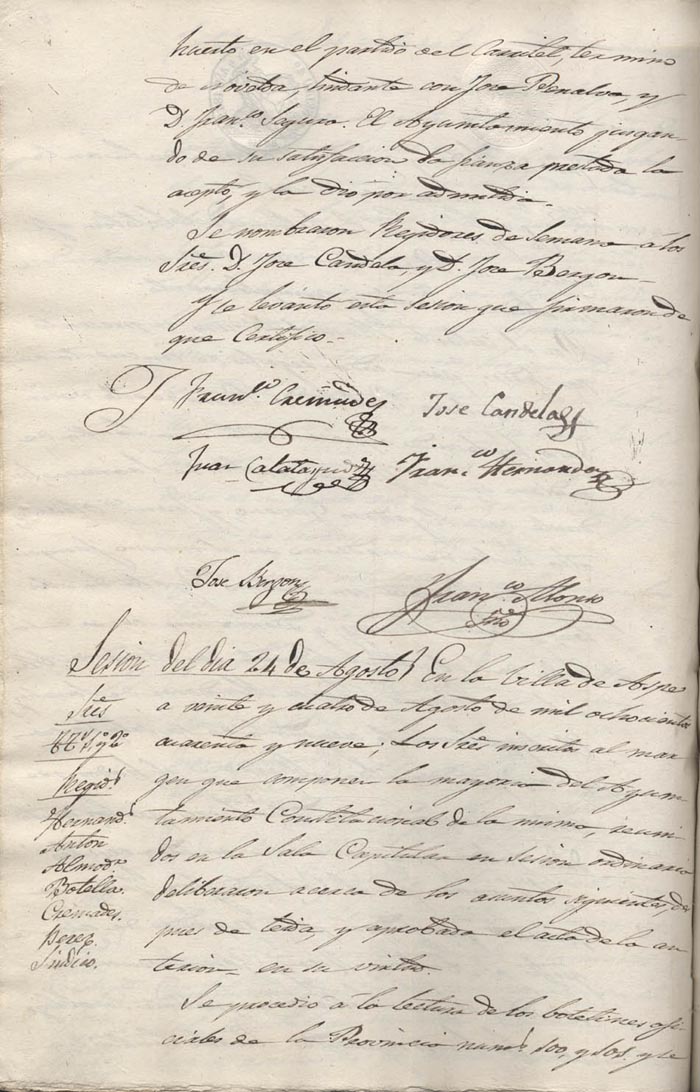 huerto en el partido del Canitel, termino
de Novelda, lindante con Jose Penalva, y
D. Fran.co Segura. El Ayuntamiento juzgan-
do de su satisfaccion la fianza prestada la
acepto, y la dio por admitida.
Se nombraron Regidores de Semana á los
Sres. D. Jose Candela, y D. Jose Bergon.
Y se levantó esta sesion que firmaron de
que Certifico.-
Fran.co Cremades Jose Candela
Juan Calatayud Fran.co Hernandez
Jose Bergon Fran.co Alonso
Srio
Sesion del dia 24 de Agosto} En la Villa de Aspe
á veinte y cuatro de Agosto de mil ochocientos
cuarenta y nueve; Los Sres inscritos al mar
gen que componen la mayoria del Ayun
tamiento Constitucional de la misma, reuni
dos en la Sala Capitular en sesion ordinaria
deliberaron acerca de los asuntos siguientes, des
pues de leida, y aprobada el acta de la an
terior en su virtud.
Se procedio á la lectura de los boletines ofi
ciales de la Provincia num.s 100, y 101, y se
Sres
1º y 2º
Regid.s
Hernand.z
Anton
Almod.r
Botella.
Cremades.
Perez.
Sindico.